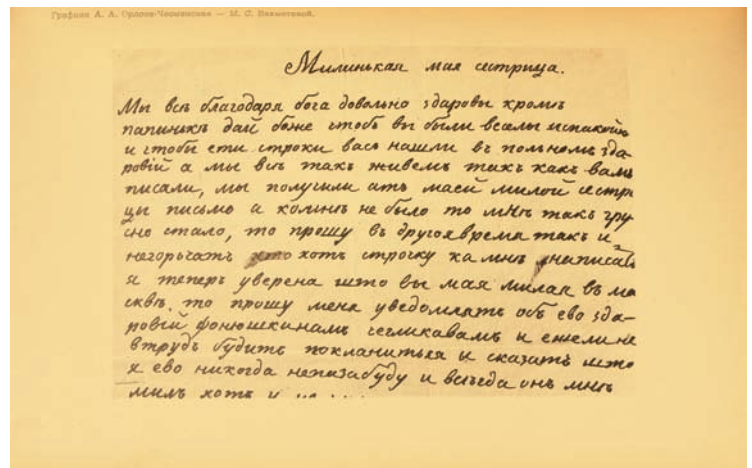 Графиня А. А. Орлова-Чесменская — М. С. Бахметевой.
Милинькая мая сестрица.
Мы всѣ благодаря бога довольно здаровы кромѣ
папинькѣ дай боже чтобъ вы были веселы испакойны
и чтобы ети строки васъ нашли въ польномъ зда-
ровiй а мы всѣ такъ живемъ такъ какъ вамъ
писали, мы получили атъ маей милой сестри
цы письмо а комнѣ не было то мнѣ такъ гру
сно стало, то прошу въ другоявремя такъ и
негорьчатъ хоть строчку ка мнѣ написать
я теперь уверена што вы мая милая въ мо
сквѣ. то прошу меня уведомлять объ ево зда-
ровiй фонюшкинамъ чегликавамъ и ежели не
втрудъ будить покланиться и сказать што
я ево никогда непазабуду и всегда онъ мнѣ
милъ хоть и